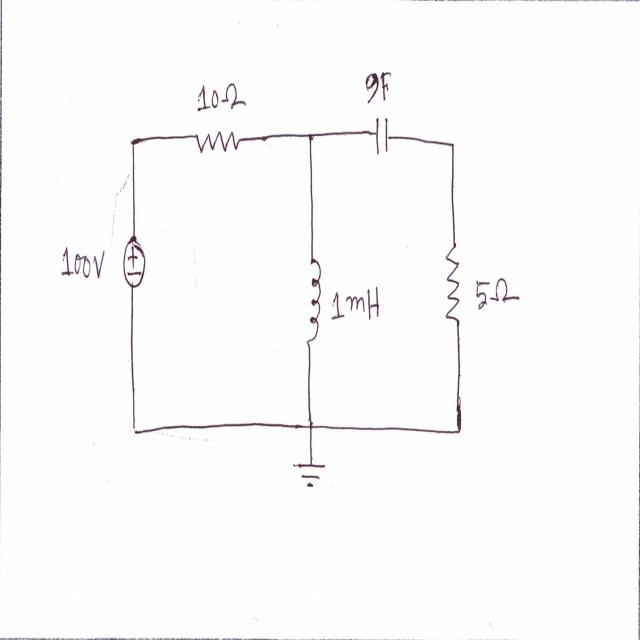 10Ω
9F
100V
±
1mH
5Ω